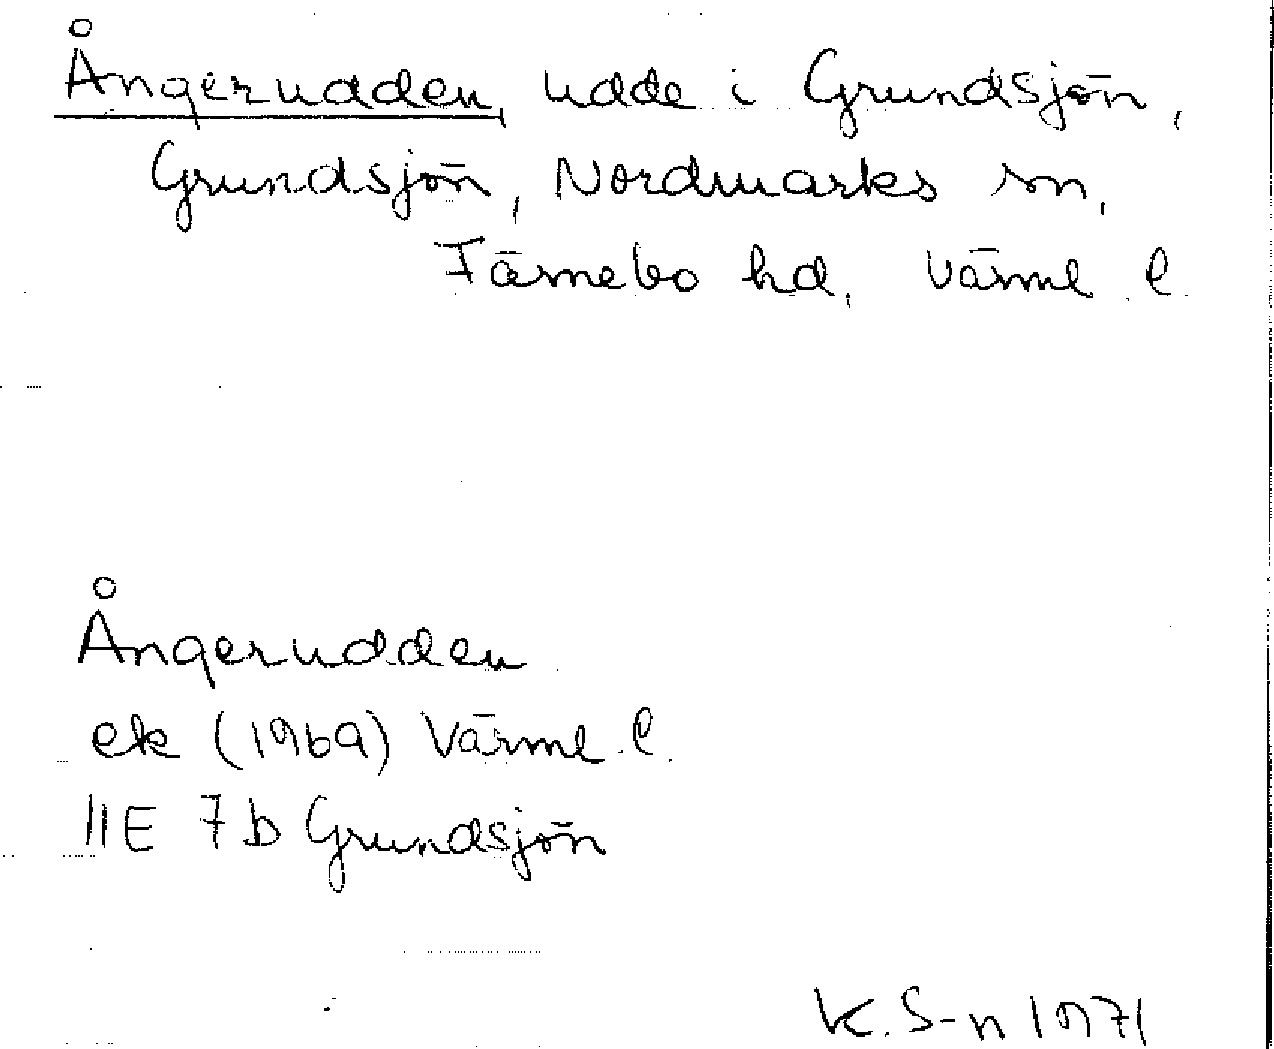 Ångerudden, udde i Grundsjön,
Grundsjön, Nordmarks sn,
Färnebo hd, Värml. l.
Ångerudden
ek (1969) Värml. l.
11E 7b Grundsjön
K. S-n 1971